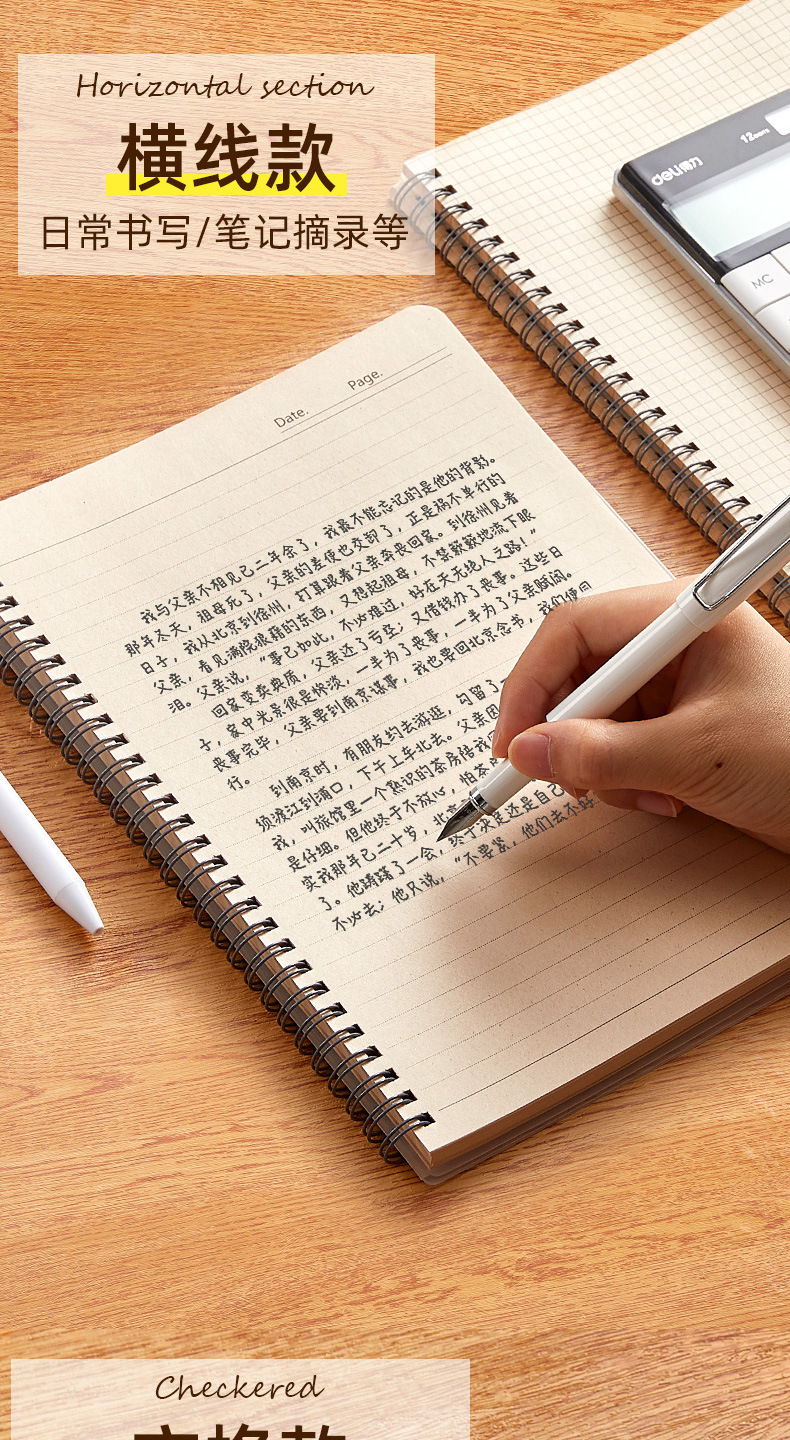 Horizontal section
横线款
日常书写/笔记摘录等
deli得力
12
MC
Date.
Page.
我与父亲不相见已二年余了，我最不能忘记的是他的背影。
那年冬天，祖母死了，父亲的差使也交卸了，正是祸不单行的
日子，我从北京到徐州，打算跟着父亲奔丧回家。到徐州见着
父亲，看见满院狼藉的东西，又想起祖母，不禁簌簌地流下眼
泪。父亲说，“事已如此，不必难过，好在天无绝人之路！”
回家变卖典质，父亲还了亏空；又借钱办了丧事。这些日
子，家中光景很是惨淡，一半为了丧事，一半为了父亲赋闲。
丧事完毕，父亲要到南京谋事，我也要回北京念书，我们便同
行。
到南京时，有朋友约去游逛，勾留了一
须渡江到浦口，下午上车北去。父亲因
我，叫旅馆里一个熟识的茶房陪我同
是仔细。但他终于不放心，怕茶
实我那年已二十岁，北京
了。他踌躇了一会，终于决定还是自己
不必去；他只说，“不要紧，他们去不好
Checkered